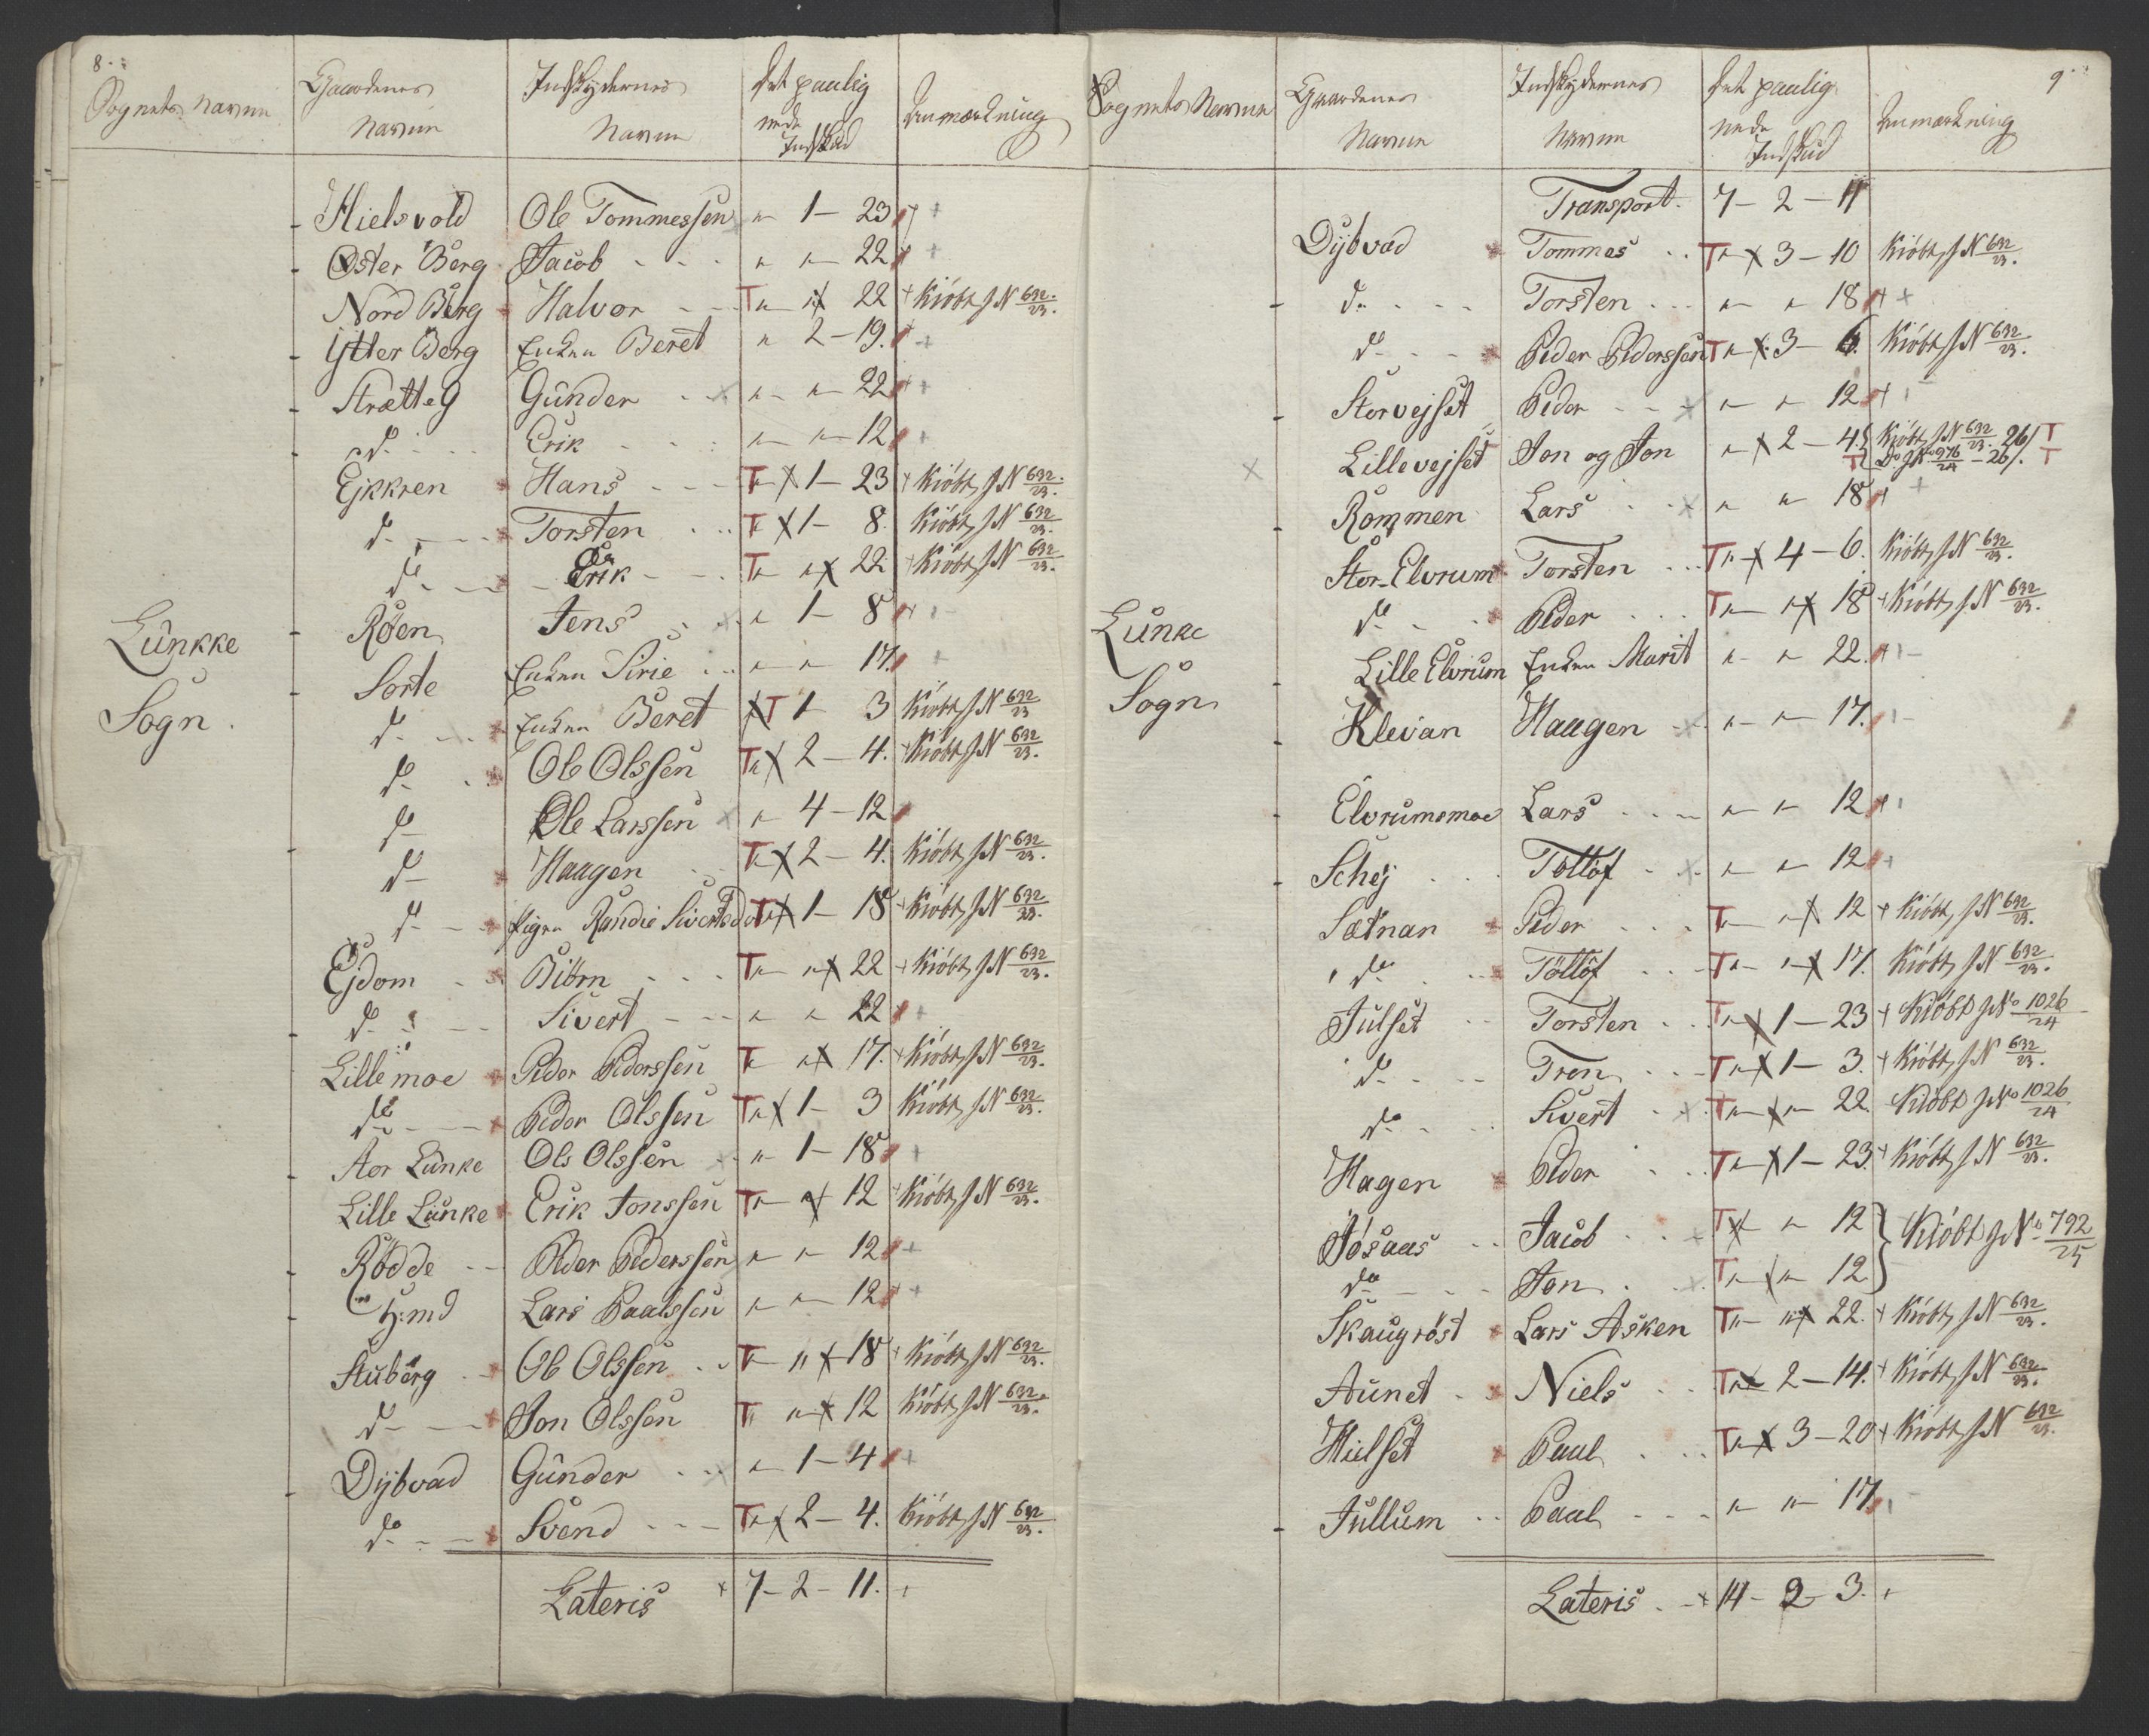 8.
Sognets Navne | Gaardenes Navne | Indskydernes Navne | det paalignede Indskud | Anmærkning
Hielsvold | Ole Tommessen | " 1 - 23 +
Öster Berg | Jacob - - - | " " 22 +
Nord Berg | Halvor - - | T " " 22 + Kiöbt JN 632/23.
Ytter Berg | Enken Beret | " 2 - 19. +
Strætte G | Gunder - | " - " 22 +
do. - - | Erik - - - | " - " 12 +
Ejkkren | Hans - - - | T " 1 - 23 + Kiöbt JN 632/23.
do. - - - | Torsten - - | T " 1 - 8. Kiöbt JN 632/23.
do. - - - | Erik - - - | T " " 22 + Kiöbt JN 632/23.
Röen | Jens - | " 1 - 8 +
Lunkke
Sogn.
Sorte | Enken Sirie - - | " - " 17. +
do. - - | Enken Beret | T 1 - 3 Kiöbt JN 632/23
do. - | Ole Olssen | T " 2 - 4. + Kiöbt JN 632/23.
do - | Ole Larssen | " 4 - 12
do - | Haagen - | T " 2 - 4. Kiöbt JN 632/23.
do. - - | Pigen Randie Sivertsd | T " 1 - 18 + Kiöbt JN 632/23.
Ejdom - | Biörn - - - | T " " 22 + Kiöbt JN 632/23.
do. - - | Sivert - - - | " " 22 +
Lillemoe | Peder Pederssen | T " 17. + Kiöbt JN 632/23.
do. - - | Peder Olssen | T " 1 - 3 Kiöbt JN 632/23.
Stor Lunke | Ole Olssen - | " 1 - 18 +
Lille Lunke | Erik Jonssen | T " " 12 + Kiöbt JN 632/23.
Rödde - - | Peder Pederssen | " " 12 +
H:md | Lars Paalssen | " " 12 +
Stuberg - | Ole Olssen - - | T " " 18 + Kiöbt JN 632/23.
do - - - | Jon Olssen | T " " 12 Kiöbt JN 632/23.
Dybvad | Gunder - - | " 1 - 4 +
do. - - | Svend - - - | T " 2 - 4. Kiöbt JN 632/23.
Lateris + 7 - 2 - 11. +
9
Sognets Navne | Gaardenes Navne | Indskydernes Navne | det paalignede Indskud | Anmærkning
Transport. 7 - 2 - 11
Dybvad | Tommes - - | T " 3 - 10 Kiöbt JN 632/23.
do. - - - | Torsten - - - | " - " 18 +
do. - - - | Peder Pederssen | T " 3 - 6. Kiöbt JN 632/23.
Storvejset | Peder - - - | " - " 12 +
Lillevejset | Jon og Jon | " 2 - 4. { Kiöbt JN 632/23. 26/ T
T { Do JNo 976/24 - 26/. T
Rommen | Lars - - | " " 18 +
Stor-Elvrum | Torsten - - | T " 4 - 6. Kiöbt JN 632/23.
do. - - | Peder - - - | T " - " 18 + Kiöbt JN 632/23.
Lunke
Sogn
Lille Elvrum | Enken Marit | " - " 22. +
Klevan | Haagen - | " - " 17.
Elvrumsmoe | Lars - - - | " - " 12 +
Schej - - - | Tollöf - - | " - " 12 +
Sætnan | Peder - - - | T " - " 12 + Kiöbt JN 632/23.
do. - - - | Tollöf - - - | T " - " 17. Kiöbt JN 632/23.
Julset - - | Torsten - - | T " 1 - 23 + Kiöbt JNo 1026/24
do. - - - | Tron - - - | T " 1 - 3. + Kiöbt JN 632/23.
do. - - - | Sivert - - | T " - " 22. Kiöbt JNo 1026/24
Hagen | Peder - - - | T " 1 - 23. + Kiöbt JN 632/23.
Jösaas - - | Jacob - - | T " " 12 } Kiöbt JNo 792/25
do - - - | Jon - - | T " " 12 }
Skaugröst | Lars Asken | T " " 22. + Kiöbt JN 632/23.
Aunet - - | Niels - - | T " 2 - 14. + Kiöbt JN 632/23.
Hielset | Paul - - - | T " 3 - 20 + Kiöbt JN 632/23.
Jullum - - | Paul - - - | " " 17
Lateris - + 14 - 2 - 3. +